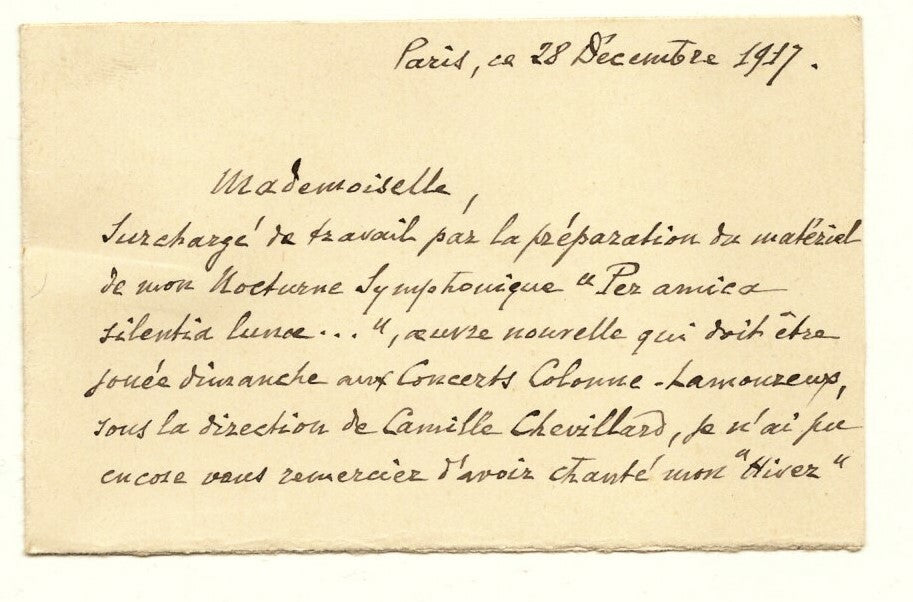 Paris, ce 28 Décembre 1917.
Mademoiselle,
Surchargé de travail par la préparation du matériel
de mon Nocturne Symphonique "Per amica
silentia lunæ...", œuvre nouvelle qui doit être
jouée dimanche aux Concerts Colonne-Lamoureux,
sous la direction de Camille Chevillard, je n'ai pu
encore vous remercier d'avoir chanté mon "Hiver"